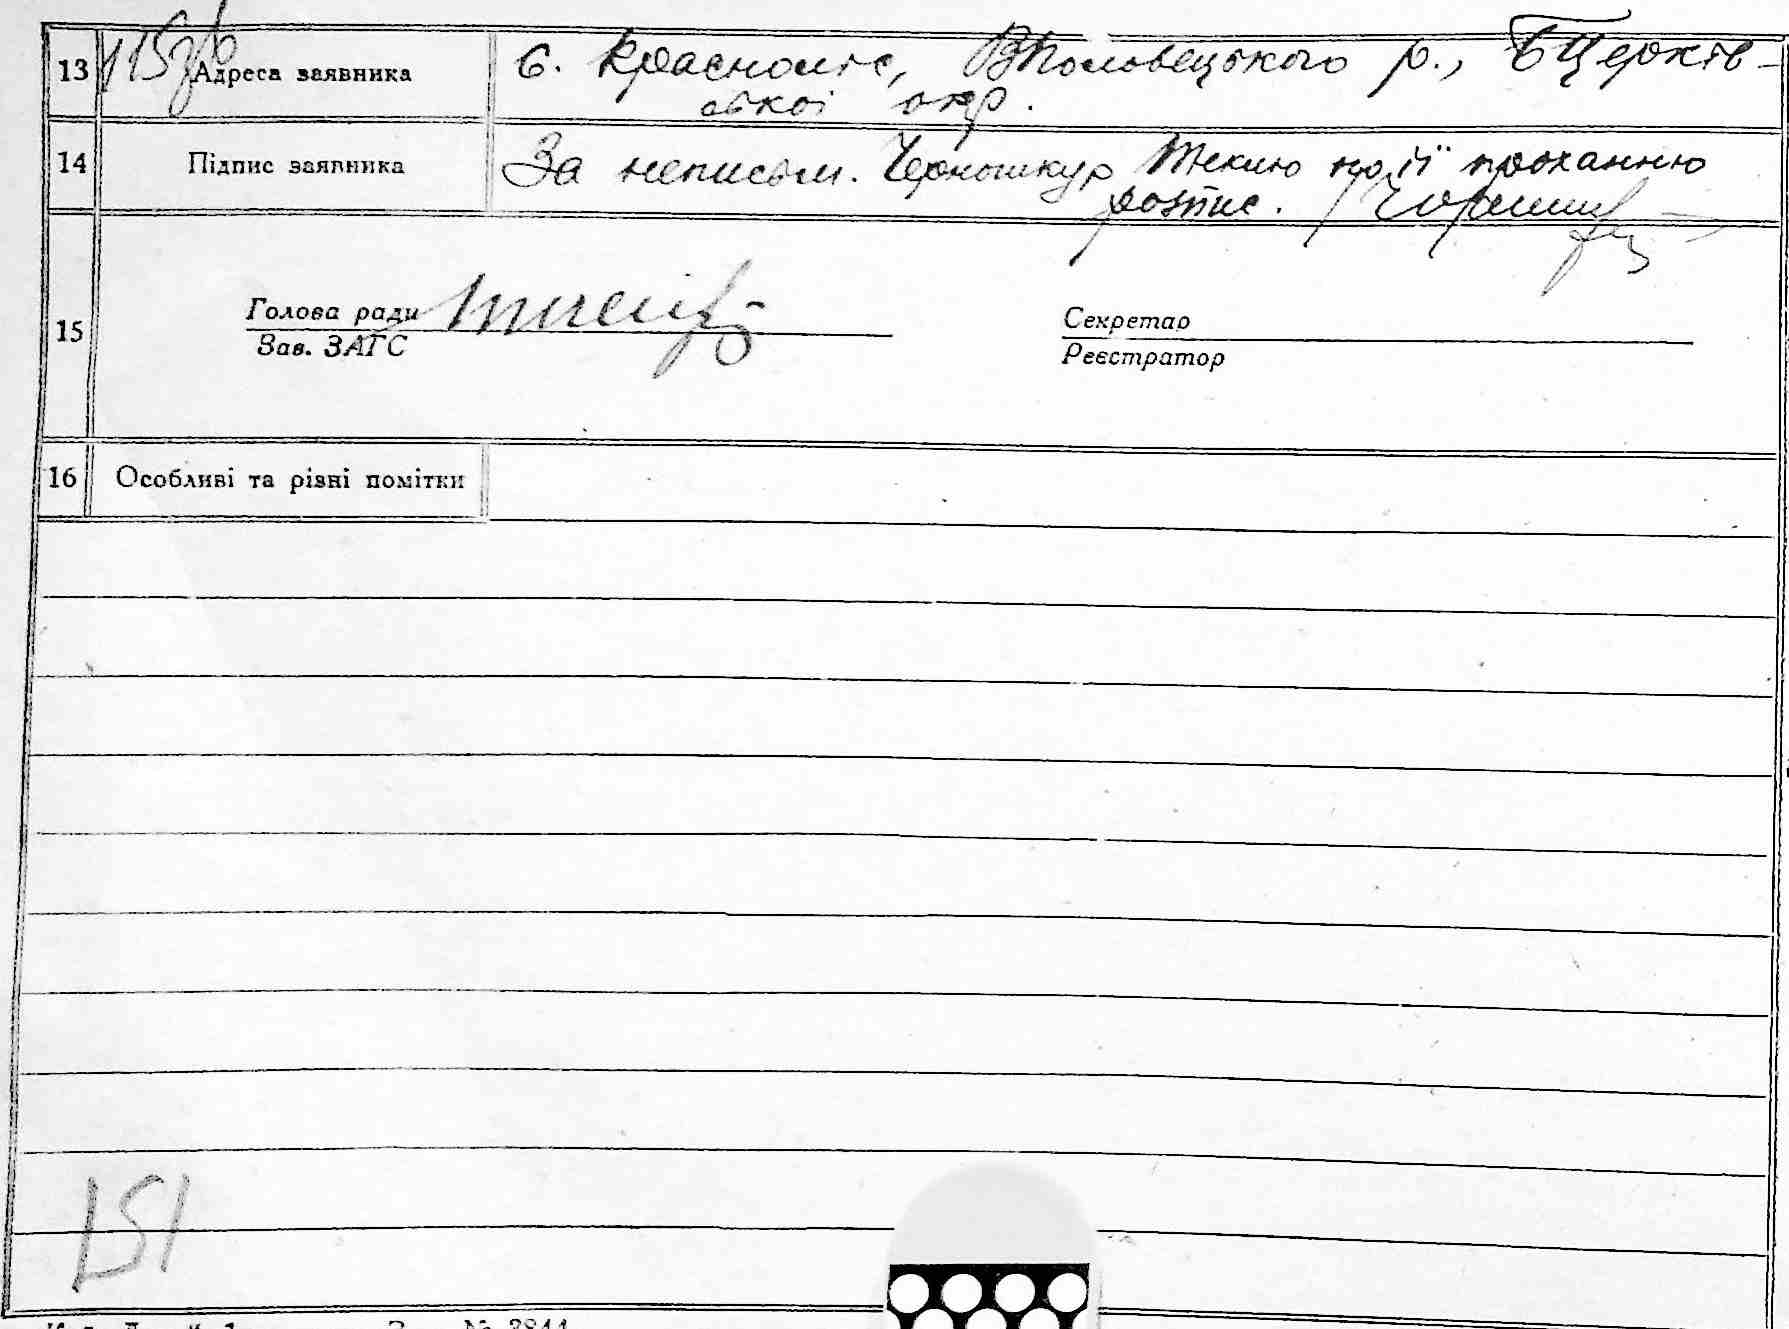 115зв
13 Адреса заявника с. Красноліс, ВПоловецького р., БЦерків-
ської окр.
14 Підпис заявника За неписьм. Чорношкур Теклю по її проханню
розпис.
15 Голова ради
Зав. ЗАГС
Секретар
Реєстратор
16 Особливі та різні помітки
151
№ 3844